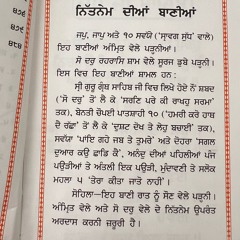 ਨਿੱਤਨੇਮ ਦੀਆਂ ਬਾਣੀਆਂ
ਜਪੁ, ਜਾਪੁ ਅਤੇ ੧੦ ਸਵਯੇ ('ਸ੍ਰਾਵਗ ਸੁੱਧ' ਵਾਲੇ)
ਇਹ ਬਾਣੀਆਂ ਅੰਮ੍ਰਿਤ ਵੇਲੇ ਪੜ੍ਹਨੀਆਂ।
ਸੋ ਦਰੁ ਰਹਰਾਸਿ ਸ਼ਾਮ ਵੇਲੇ ਸੂਰਜ ਡੁਬੇ ਪੜ੍ਹਨੀ।
ਇਸ ਵਿਚ ਇਹ ਬਾਣੀਆਂ ਸ਼ਾਮਲ ਹਨ :
ਸ੍ਰੀ ਗੁਰੂ ਗ੍ਰੰਥ ਸਾਹਿਬ ਜੀ ਵਿਚ ਲਿਖੇ ਹੋਏ ਨੌਂ ਸ਼ਬਦ
('ਸੋ ਦਰੁ' ਤੋਂ ਲੈ ਕੇ 'ਸਰਣਿ ਪਰੇ ਕੀ ਰਾਖਹੁ ਸਰਮਾ'
ਤਕ), ਬੇਨਤੀ ਚੌਪਈ ਪਾਤਸ਼ਾਹੀ ੧੦ ('ਹਮਰੀ ਕਰੋ ਹਾਥ
ਦੈ ਰੱਛਾ' ਤੋਂ ਲੈ ਕੇ 'ਦੁਸ਼ਟ ਦੋਖ ਤੇ ਲੇਹੁ ਬਚਾਈ' ਤਕ),
ਸਵਯਾ 'ਪਾਂਇ ਗਹੇ ਜਬ ਤੇ ਤੁਮਰੇ' ਅਤੇ ਦੋਹਰਾ 'ਸਗਲ
ਦੁਆਰ ਕਉ ਛਾਡਿ ਕੈ', ਅਨੰਦੁ ਦੀਆਂ ਪਹਿਲੀਆਂ ਪੰਜ
ਪਉੜੀਆਂ ਤੇ ਅੰਤਲੀ ਇਕ ਪਉੜੀ, ਮੁੰਦਾਵਣੀ ਤੇ ਸਲੋਕ
ਮਹਲਾ ੫ 'ਤੇਰਾ ਕੀਤਾ ਜਾਤੋ ਨਾਹੀ'।
ਸੋਹਿਲਾ—ਇਹ ਬਾਣੀ ਰਾਤ ਨੂੰ ਸੌਣ ਵੇਲੇ ਪੜ੍ਹਨੀ।
ਅੰਮ੍ਰਿਤ ਵੇਲੇ ਅਤੇ ਸੋ ਦਰੁ ਵੇਲੇ ਦੇ ਨਿੱਤਨੇਮ ਉਪਰੰਤ
ਅਰਦਾਸ ਕਰਨੀ ਜ਼ਰੂਰੀ ਹੈ।